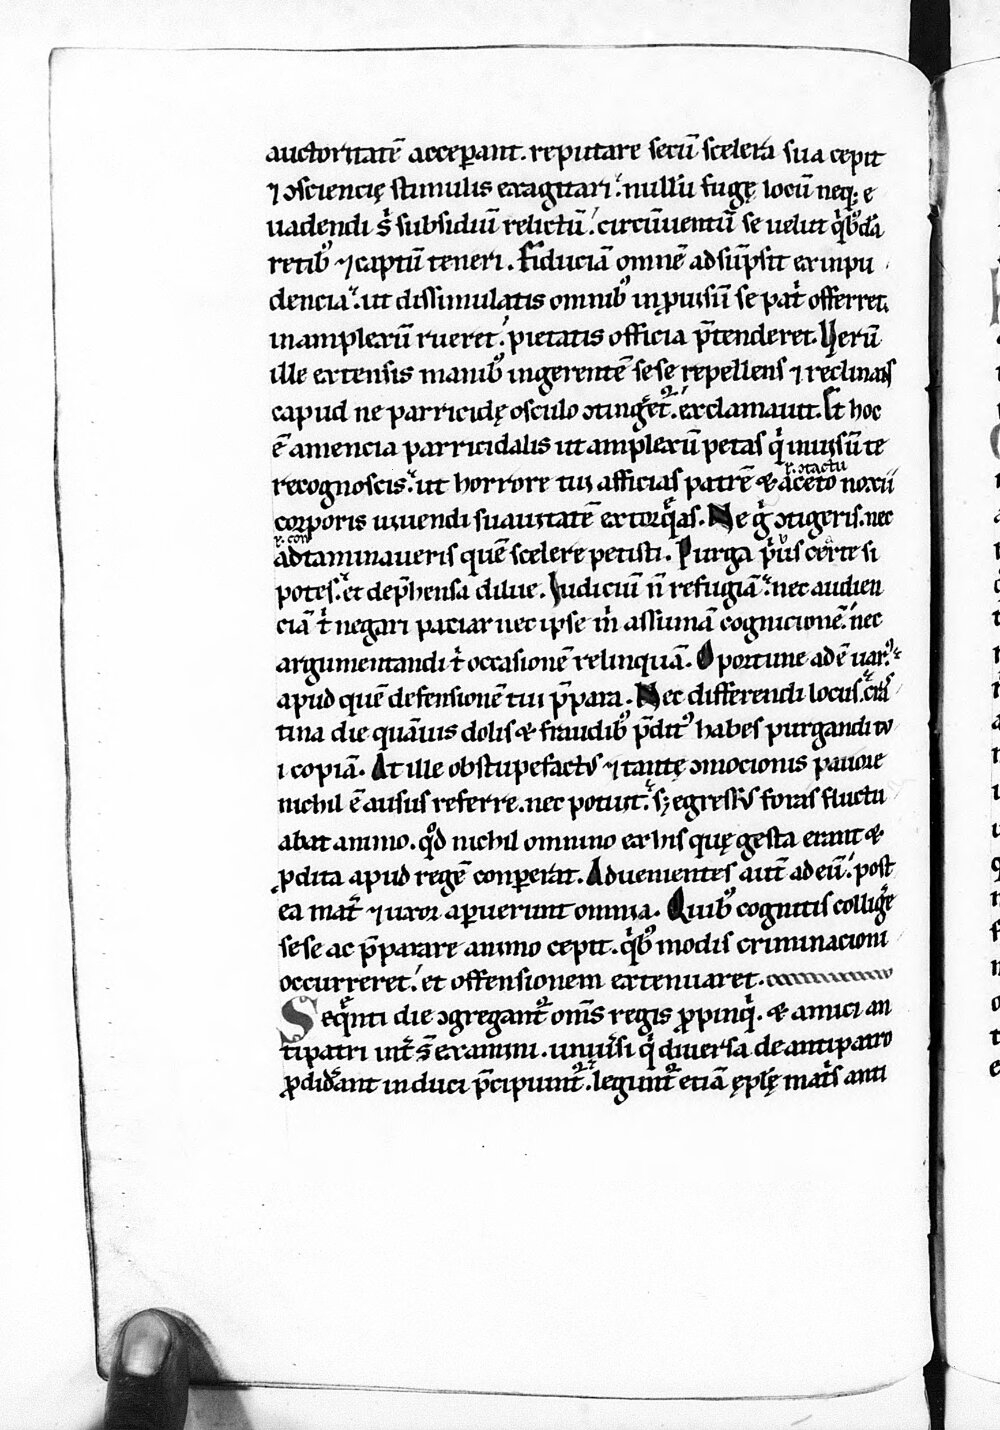 auctoritatē acceperant. reputare secū scelera sua cepit
⁊ ↄsciencię stimulis exagitari. nullū fugę locū neq; e
uadendi s; subsidiū relictū. circūuentū se uelut q̇bꝰdā
retibꝰ ⁊ captū teneri. Fiduciā omnē adsūpsit ex inpu
dencia. ut dissimulatis omnibꝰ inꝓuisū se pat̄ offerret.
in amplexū rueret. pietatis officia p̄tenderet. Uerū
ille extensis manibꝰ ingerentē sese repellens ⁊ reclinans
capud ne parricidę osculo ↄtinget᷑. exclamauit. Et hoc
ē amencia parricidalis ut amplexū petas q̇ inuisū te
recognoscis. ut horrore tui afficias patrē & aceto noxii
r. ↄtactu
corporis uiuendi suauitatē extorq̄as. Ne g̊ ↄtigeris. nec
r. con
adtaminaueris quē scelere petisti. Purga pͥus certe si
potes. et dep̄hensa dilue. Iudiciū n̄ refugiā. nec audien
ciā t̄ negari paciar nec ipse m̄ assumā cognicionē. nec
argumentandi t̄ occasionē relinquā. Oportune adē uarꝰ
apud quē defensionē tui p̄para. Nec differendi locus. cras
tina die quāuis dolis & fraudibꝰ p̄ditꝰ habes purgandi tu
i copiā. At ille obstupefactꝰ ⁊ tantę ↄmocionis pauore
nichil ē ausus referre. nec potuit. s; egressus foras fluctu
abat animo. qd̊ nichil omnino ex his quę gesta erant &
ꝓdita apud regē conpererat. Aduenientes aut̄ ad eū. post
ea mat̄ ⁊ uxor aperuerunt omnia. Quibꝰ cognitis collige
sese ac p̄parare animo cepit. q̇bꝰ modis criminacioni
occurreret. et offensionem extenuaret.
Seq̄nti die ↄgregant᷑ om̄s regis ꝓpinq̇. & amici an
tipatri int̄ s̄ examini. uniuersi q̇ diuersa de antipatro
ꝓdiderant in duci p̄cipiunt᷑. legunt᷑ etiā ęplę matͥs anti